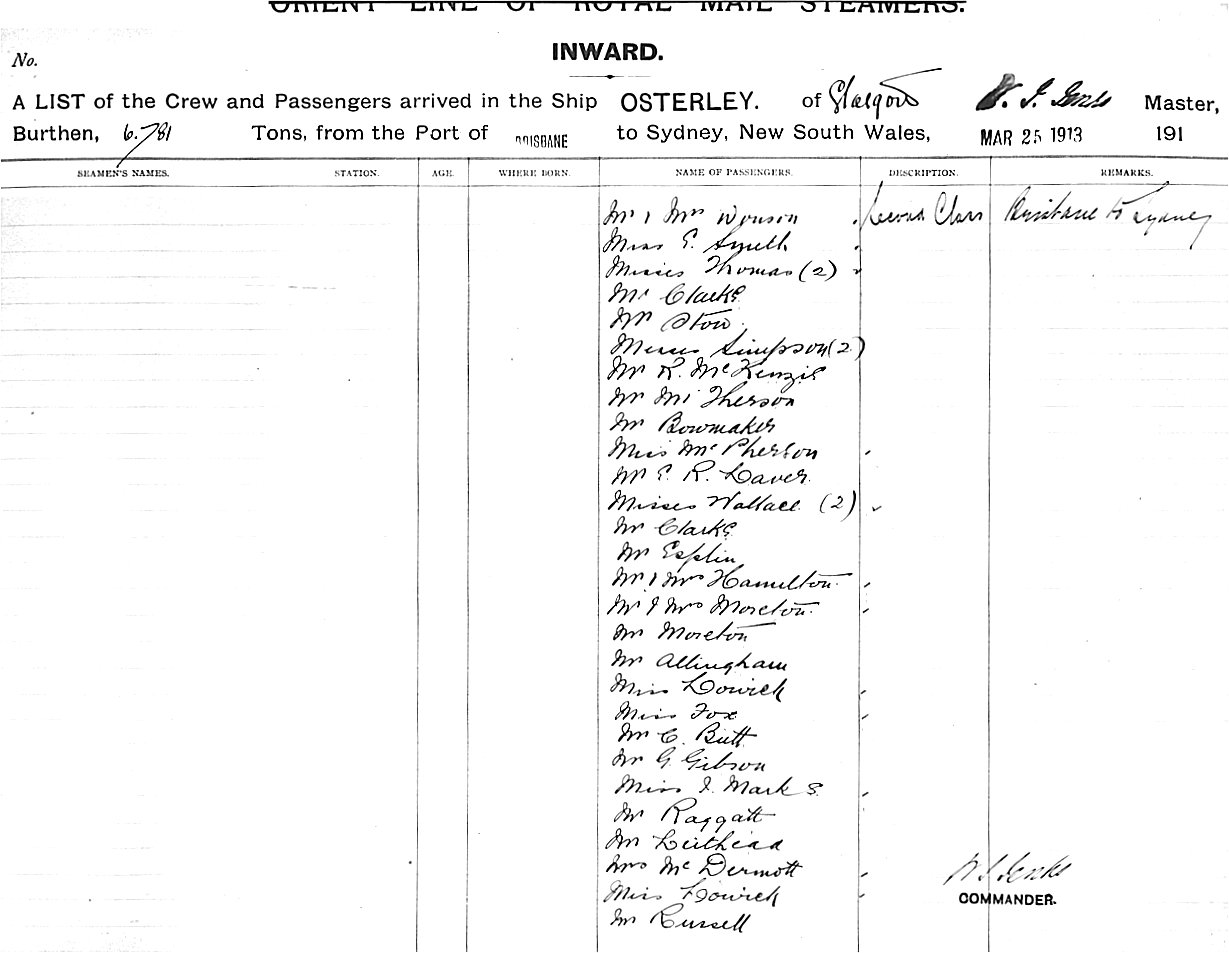 ORIENT LINE OF ROYAL MAIL STEAMERS.
INWARD.
No.
A LIST of the Crew and Passengers arrived in the Ship OSTERLEY. of Glasgow W. S. Jenks Master,
Burthen, 6.781 Tons, from the Port of BRISBANE to Sydney, New South Wales, MAR 25 1913 191
SEAMEN'S NAMES. STATION. AGE. WHERE BORN. NAME OF PASSENGERS. DESCRIPTION. REMARKS.
Mr & Mrs Wonson Second Class Brisbane to Sydney
Miss E. Smith
Misses Thomas (2)
Mr Clarke
Mr Stow
Misses Simpson (2)
Mr R. McKenzie
Mr Mc
Mr Bowmaker
Miss McPherson
Mr E. R. Laver
Misses Wallace (2)
Mr Clarke
Mr Esplin
Mr & Mrs Hamilton
Mr & Mrs Moreton
Mr Moreton
Mr Allingham
Miss Lowick
Miss Fox
Mr C. Butt
Mr G. Gibson
Miss I. Marks
Mr Raggatt
Mr Leithead
Mrs McDermott
W S Jenks
COMMANDER.
Miss Lowick
Mr Russell